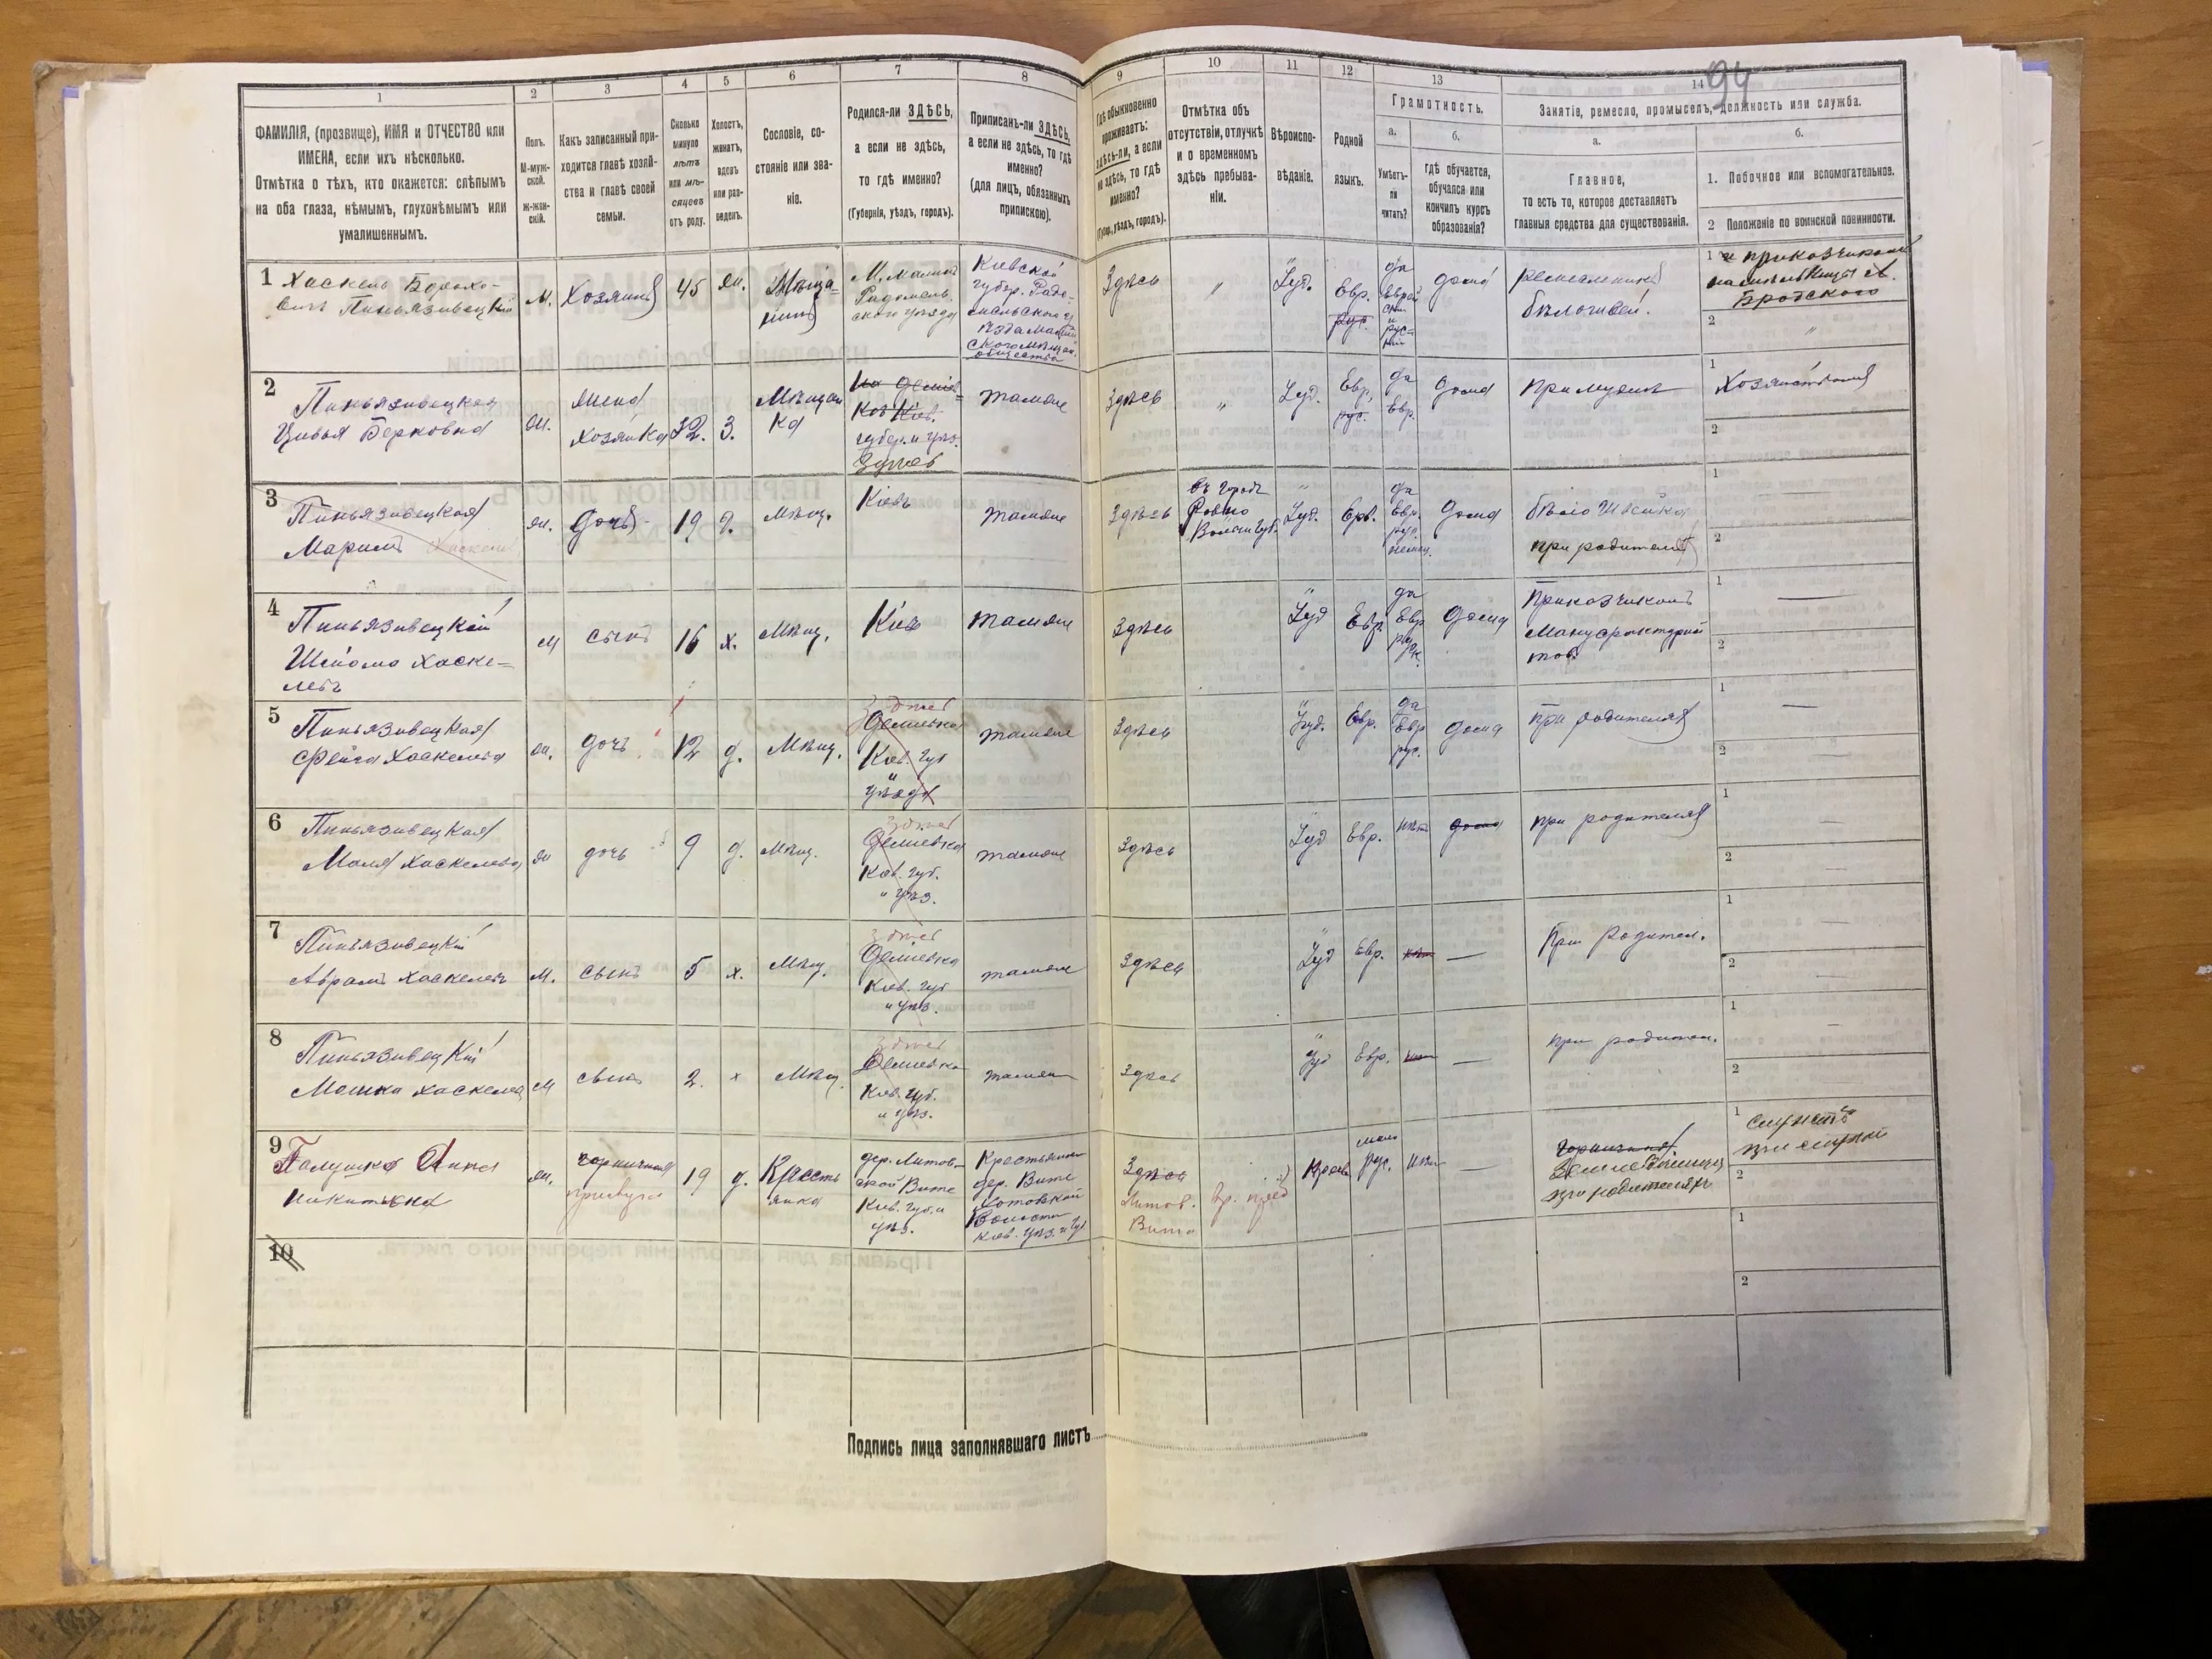 94
1 2 3 4 5 6 7 8 9 10 11 12 13 14
ФАМИЛІЯ, (прозвище), ИМЯ и ОТЧЕСТВО или
ИМЕНА, если ихъ нѣсколько.
Отмѣтка о тѣхъ, кто окажется: слѣпымъ
на оба глаза, нѣмымъ, глухонѣмымъ или
умалишеннымъ.
Полъ.
М-муж-
ской.
Ж-жен-
скій.
Какъ записанный при-
ходится главѣ хозяй-
ства и главѣ своей
семьи.
Сколько
минуло
лѣтъ
или мѣ-
сяцевъ
отъ роду.
Холостъ,
женатъ,
вдовъ
или раз-
веденъ.
Сословіе, со-
стояніе или зва-
ніе.
Родился-ли ЗДѢСЬ,
а если не здѣсь,
то гдѣ именно?
(Губернія, уѣздъ, городъ).
Приписанъ-ли ЗДѢСЬ,
а если не здѣсь, то гдѣ
именно?
(для лицъ, обязанныхъ
припискою).
Гдѣ обыкновенно
проживаетъ:
здѣсь-ли, а если
не здѣсь, то гдѣ
именно?
(Губер., уѣздъ, городъ).
Отмѣтка объ
отсутствіи, отлучкѣ
и о временномъ
здѣсь пребыва-
ніи.
Вѣроиспо-
вѣданіе.
Родной
языкъ.
Грамотность.
а.
Умѣетъ-
ли
читать?
б.
гдѣ обучается,
обучался или
кончилъ курсъ
образованія?
Занятіе, ремесло, промыселъ, должность или служба.
а.
Главное,
то есть то, которое доставляетъ
главныя средства для существованія.
б.
1. Побочное или вспомогательное.
2 Положеніе по воинской повинности.
1 Хаскель
Пиньязивецкій
м. Хозяинъ 45 ж. Мѣща-
нинъ
М. Малинъ
Радомысль-
скаго уѣзда
Кіевской
губер. Радо-
мысльскаго у
ѣзда Малин
скаго мѣщан.
общества
Здѣсь
"
Іуд.
Евр.
рус.
да
Еврей
ски
и
рус-
скій
дома
ремесленникъ
бѣлошвей.
1 и приказчикомъ
на мельницѣ
Бродскаго
2 "
2 Пиньязивецкая
Цивья Берковна
ж.
жена
хозяйка 32. 3.
Мѣщан
ка
Кіев.
губер. и уѣз.
тамже
Здѣсь
"
Іуд.
Евр.
рус.
да
Евр.
дома
при мужѣ
1 Хозяйствомъ
2
3 Пиньязивецкая
Маріамъ
ж. дочь 19 д. мѣщ. Кіевъ тамже Здѣсь
въ городѣ
Ровно
Волынск. губ.
Іуд. Евр.
да
Евр.
рус.
немец.
дома
бѣлошвейка
при родителяхъ
1
2
4 Пиньязивецкій
Шлiома Хаске-
левъ
м сынъ 16 х. мѣщ. Кіевъ тамже Здѣсь Іуд Евр.
да
Евр
рус
дома
Приказчикомъ
Мануфактурный
тов.
1
2
5 Пиньязивецкая
Фейга Хаскелева
ж. дочь 12 д. Мѣщ.
здѣсь
Демiевка
Кiев. губ
" уѣзда
тамже Здѣсь Іуд. Евр.
да
Евр
рус.
дома при родителяхъ
1
2
6 Пиньязивецкая
Маля Хаскелева
ж дочь 9 д. мѣщ.
здѣсь
Демiевка
Кiев. губ.
" уѣз.
тамже Здѣсь Іуд Евр. нѣтъ дома при родителяхъ
1
2
7 Пиньязивецкій
Абрамъ Хаскелевъ
м. сынъ 5 х. Мѣщ.
здѣсь
Демiевка
Кiев. губ
" уѣз.
тамже Здѣсь Іуд Евр. нѣтъ — При родител.
1
2
8 Пиньязивецкій
Мошко Хаскелев
м сынъ 2. х Мѣщ.
здѣсь
Демiевка
Кiев. губ.
" уѣз.
тамже Здѣсь Іуд Евр. нѣтъ — при родител.
1
2
9 Галушко Анна
Никитична
ж.
горничная
прислуга
19 д.
Кресть
янка
дер. Литов-
ской Вите
Кiев. губ. и
уѣз.
Крестьянин
дер. Вите
Хотовской
Волости
Кiев. уѣз. и губ
Здѣсь
Литов.
Вита
вр. преб
Прав
мало
рус.
нѣтъ
—
горничная
при родителяхъ
1
2
10
1
2
Подпись лица заполнявшаго листъ